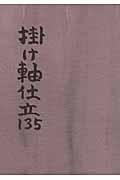 掛け軸仕立135